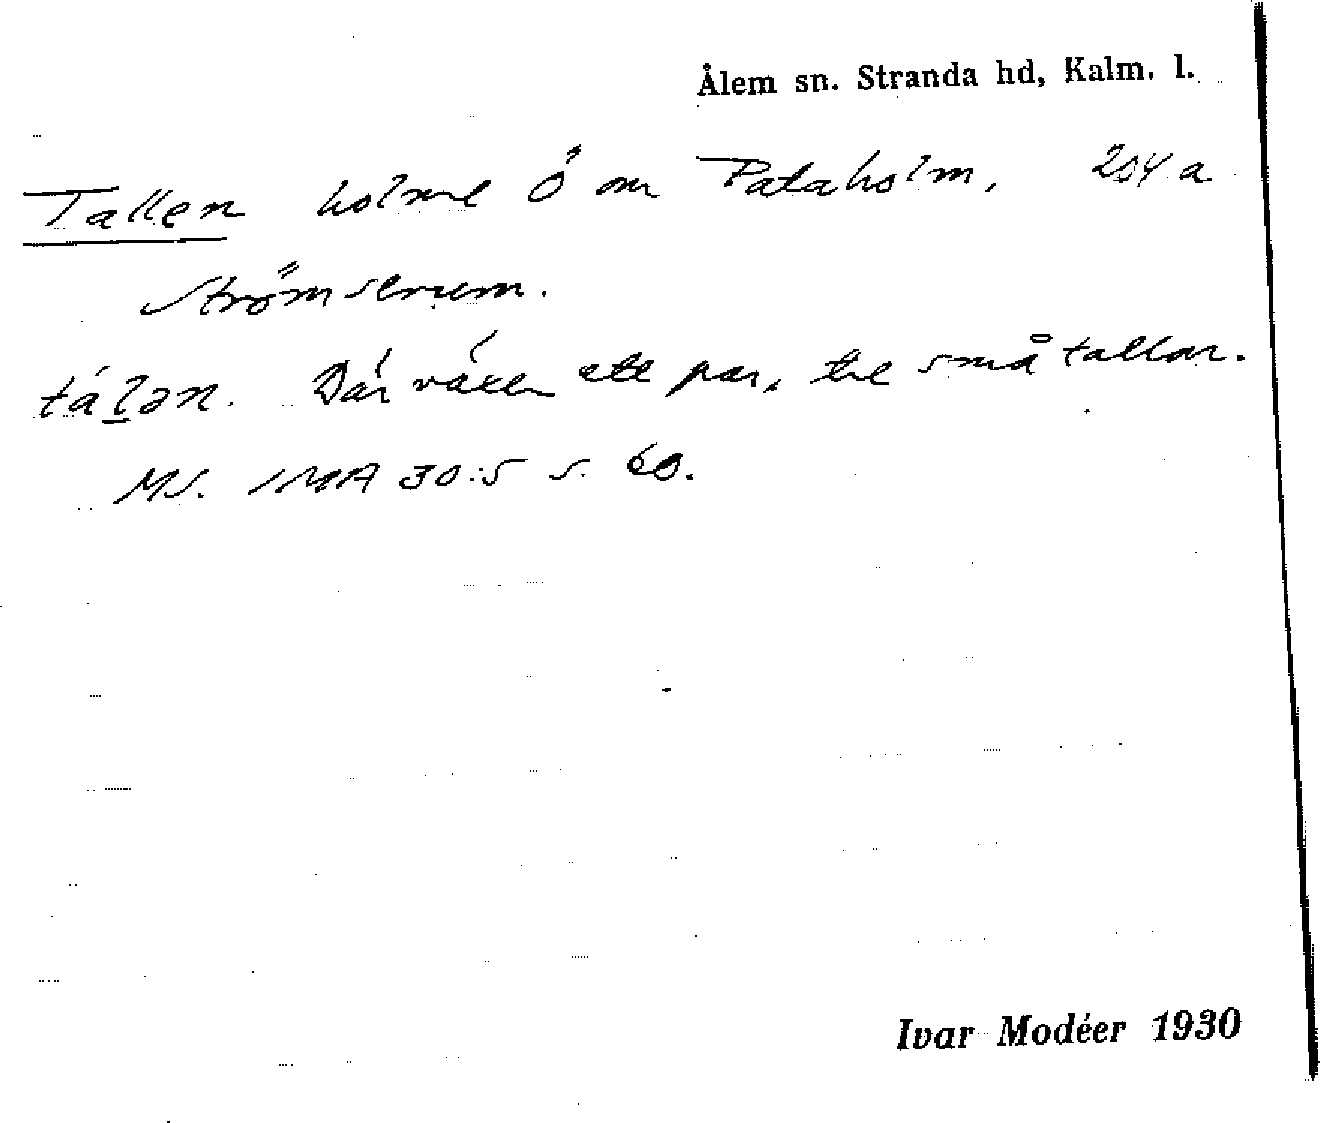 Ålem sn. Stranda hd, Kalm. l.
Tallen holme Ö om Pataholm, 204 a
Strömserum.
tál̲ən. Där växer ett par, tre små tallar.
MS. IMA 30:5 s. 60.
Ivar Modéer 1930